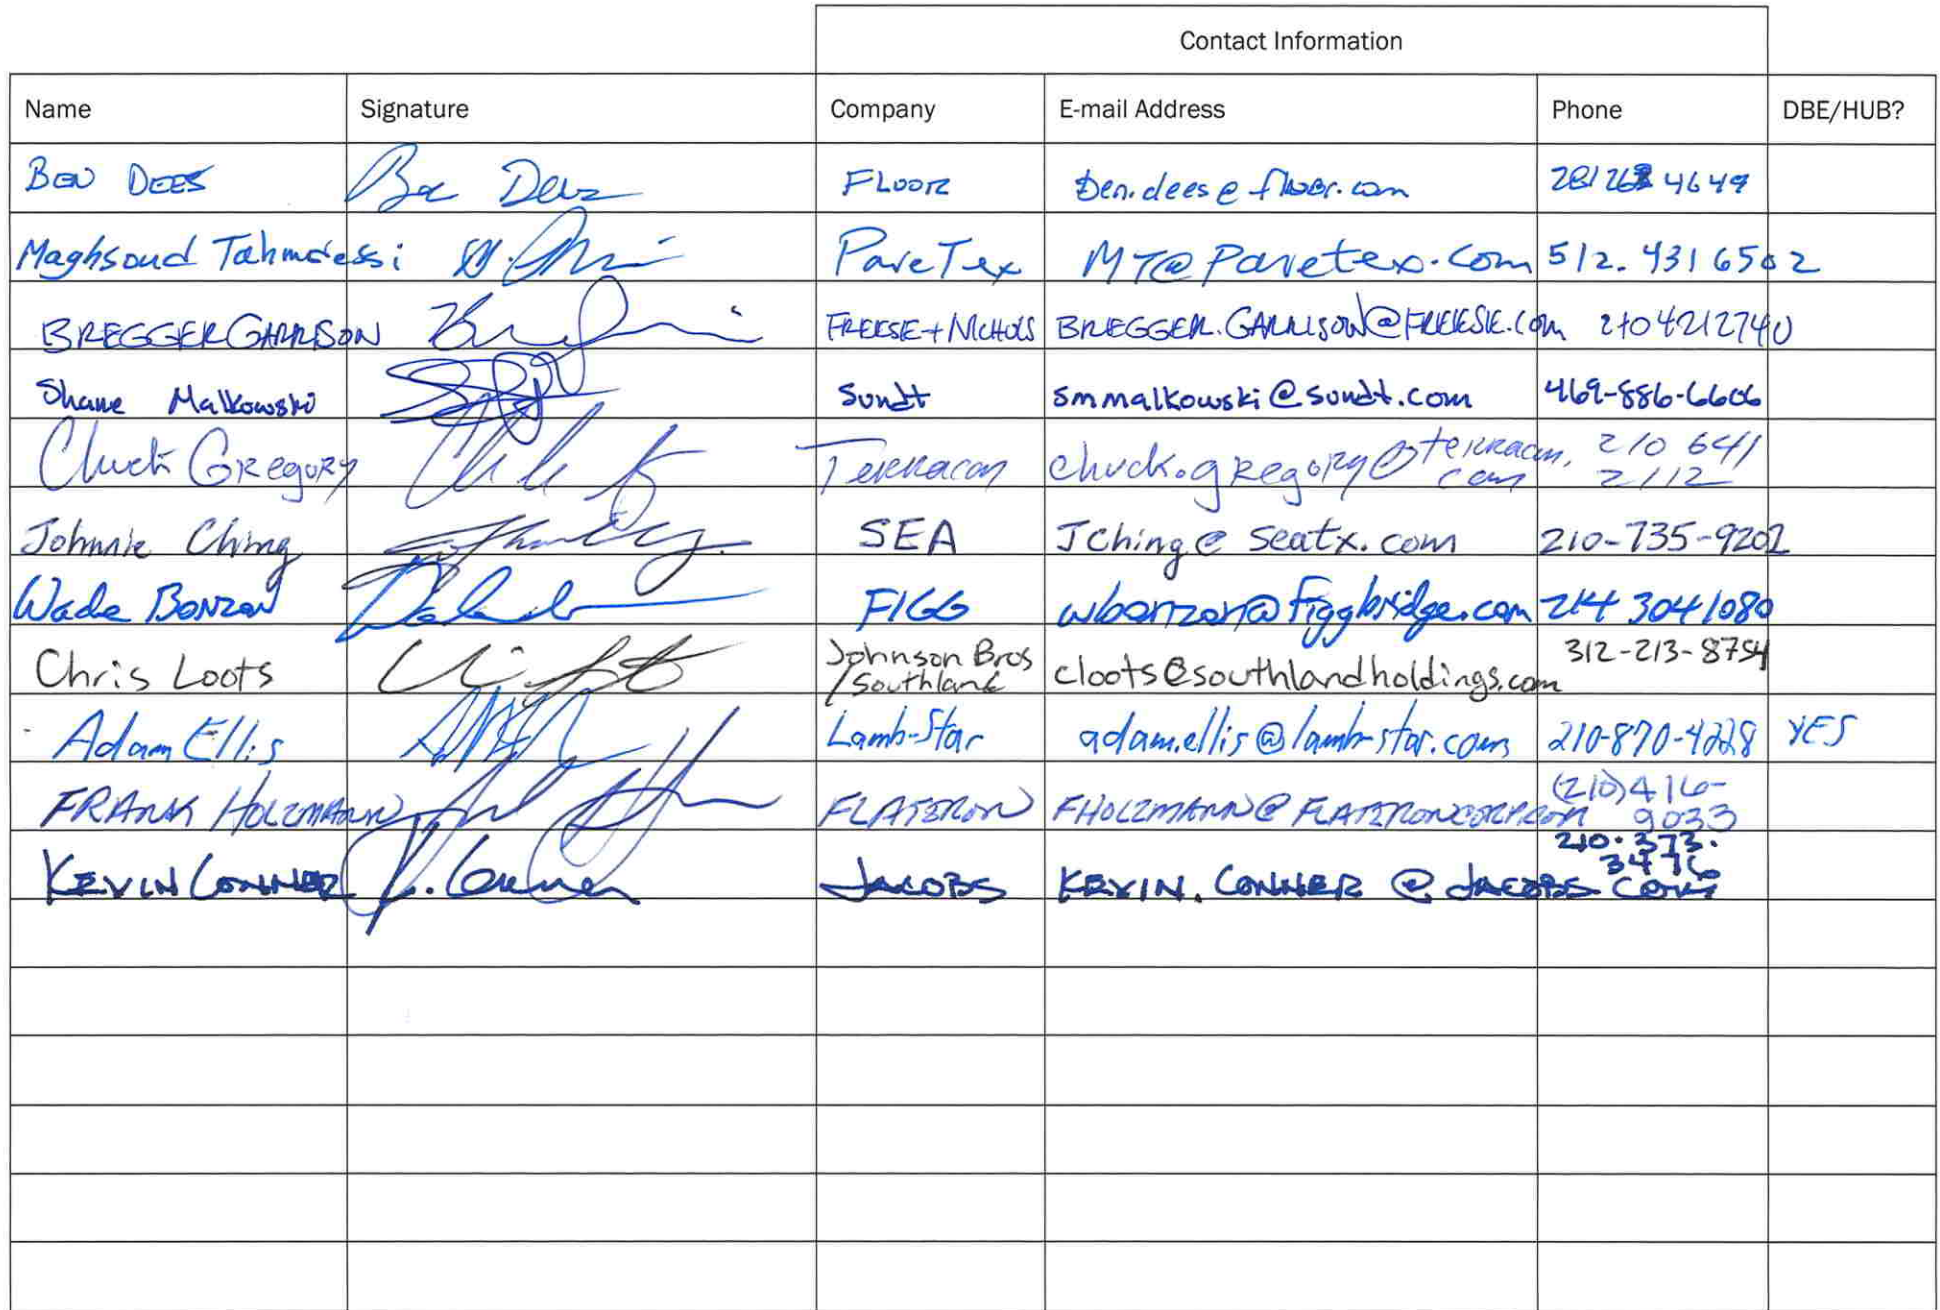 Contact Information
Name Signature Company E-mail Address Phone DBE/HUB?
BEN DEES FLUOR ben.dees@fluor.com 281 263 4649
Maghsoud Tahmoressi PaveTex MT@Pavetex.com 512. 431 6502
BREGGER GARRISON FREESE + NICHOLS BREGGER.GARRISON@FREESE.COM 210 421 2740
Shane Malkowski Sundt smmalkowski@sundt.com 469-886-6606
Chuck Gregory Terracon chuck.gregory@terracon. 210 641
com 2112
Johnnie Ching SEA Jching@seatx.com 210-735-9202
Wade Bonzon FIGG wbonzon@figgbridge.com 214 304 1080
Chris Loots Johnson Bros cloots@southlandholdings.com 312-213-8754
/Southland
Adam Ellis Lamb-Star adam.ellis@lamb-star.com 210-870-4228 YES
FRANK HOLZMANN FLATIRON FHOLZMANN@FLATIRONCORP.COM (210)416-
9033
KEVIN CONNER K. Conner JACOBS KEVIN.CONNER@JACOBS.COM 210.373.
3476